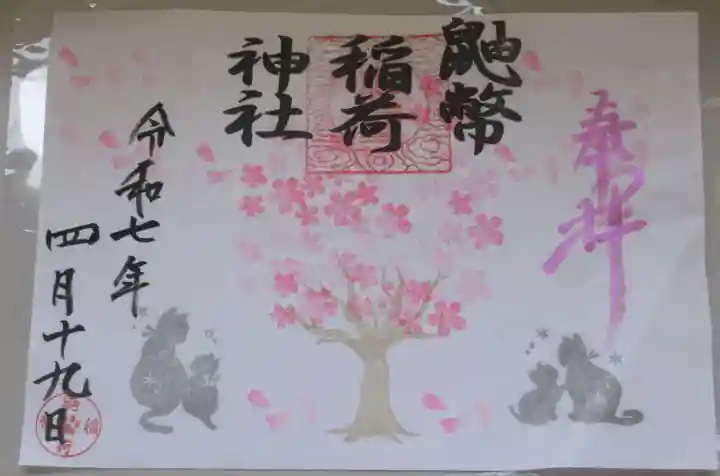 奉拝
鼬幣
稲荷
神社
令和七年
四月十九日